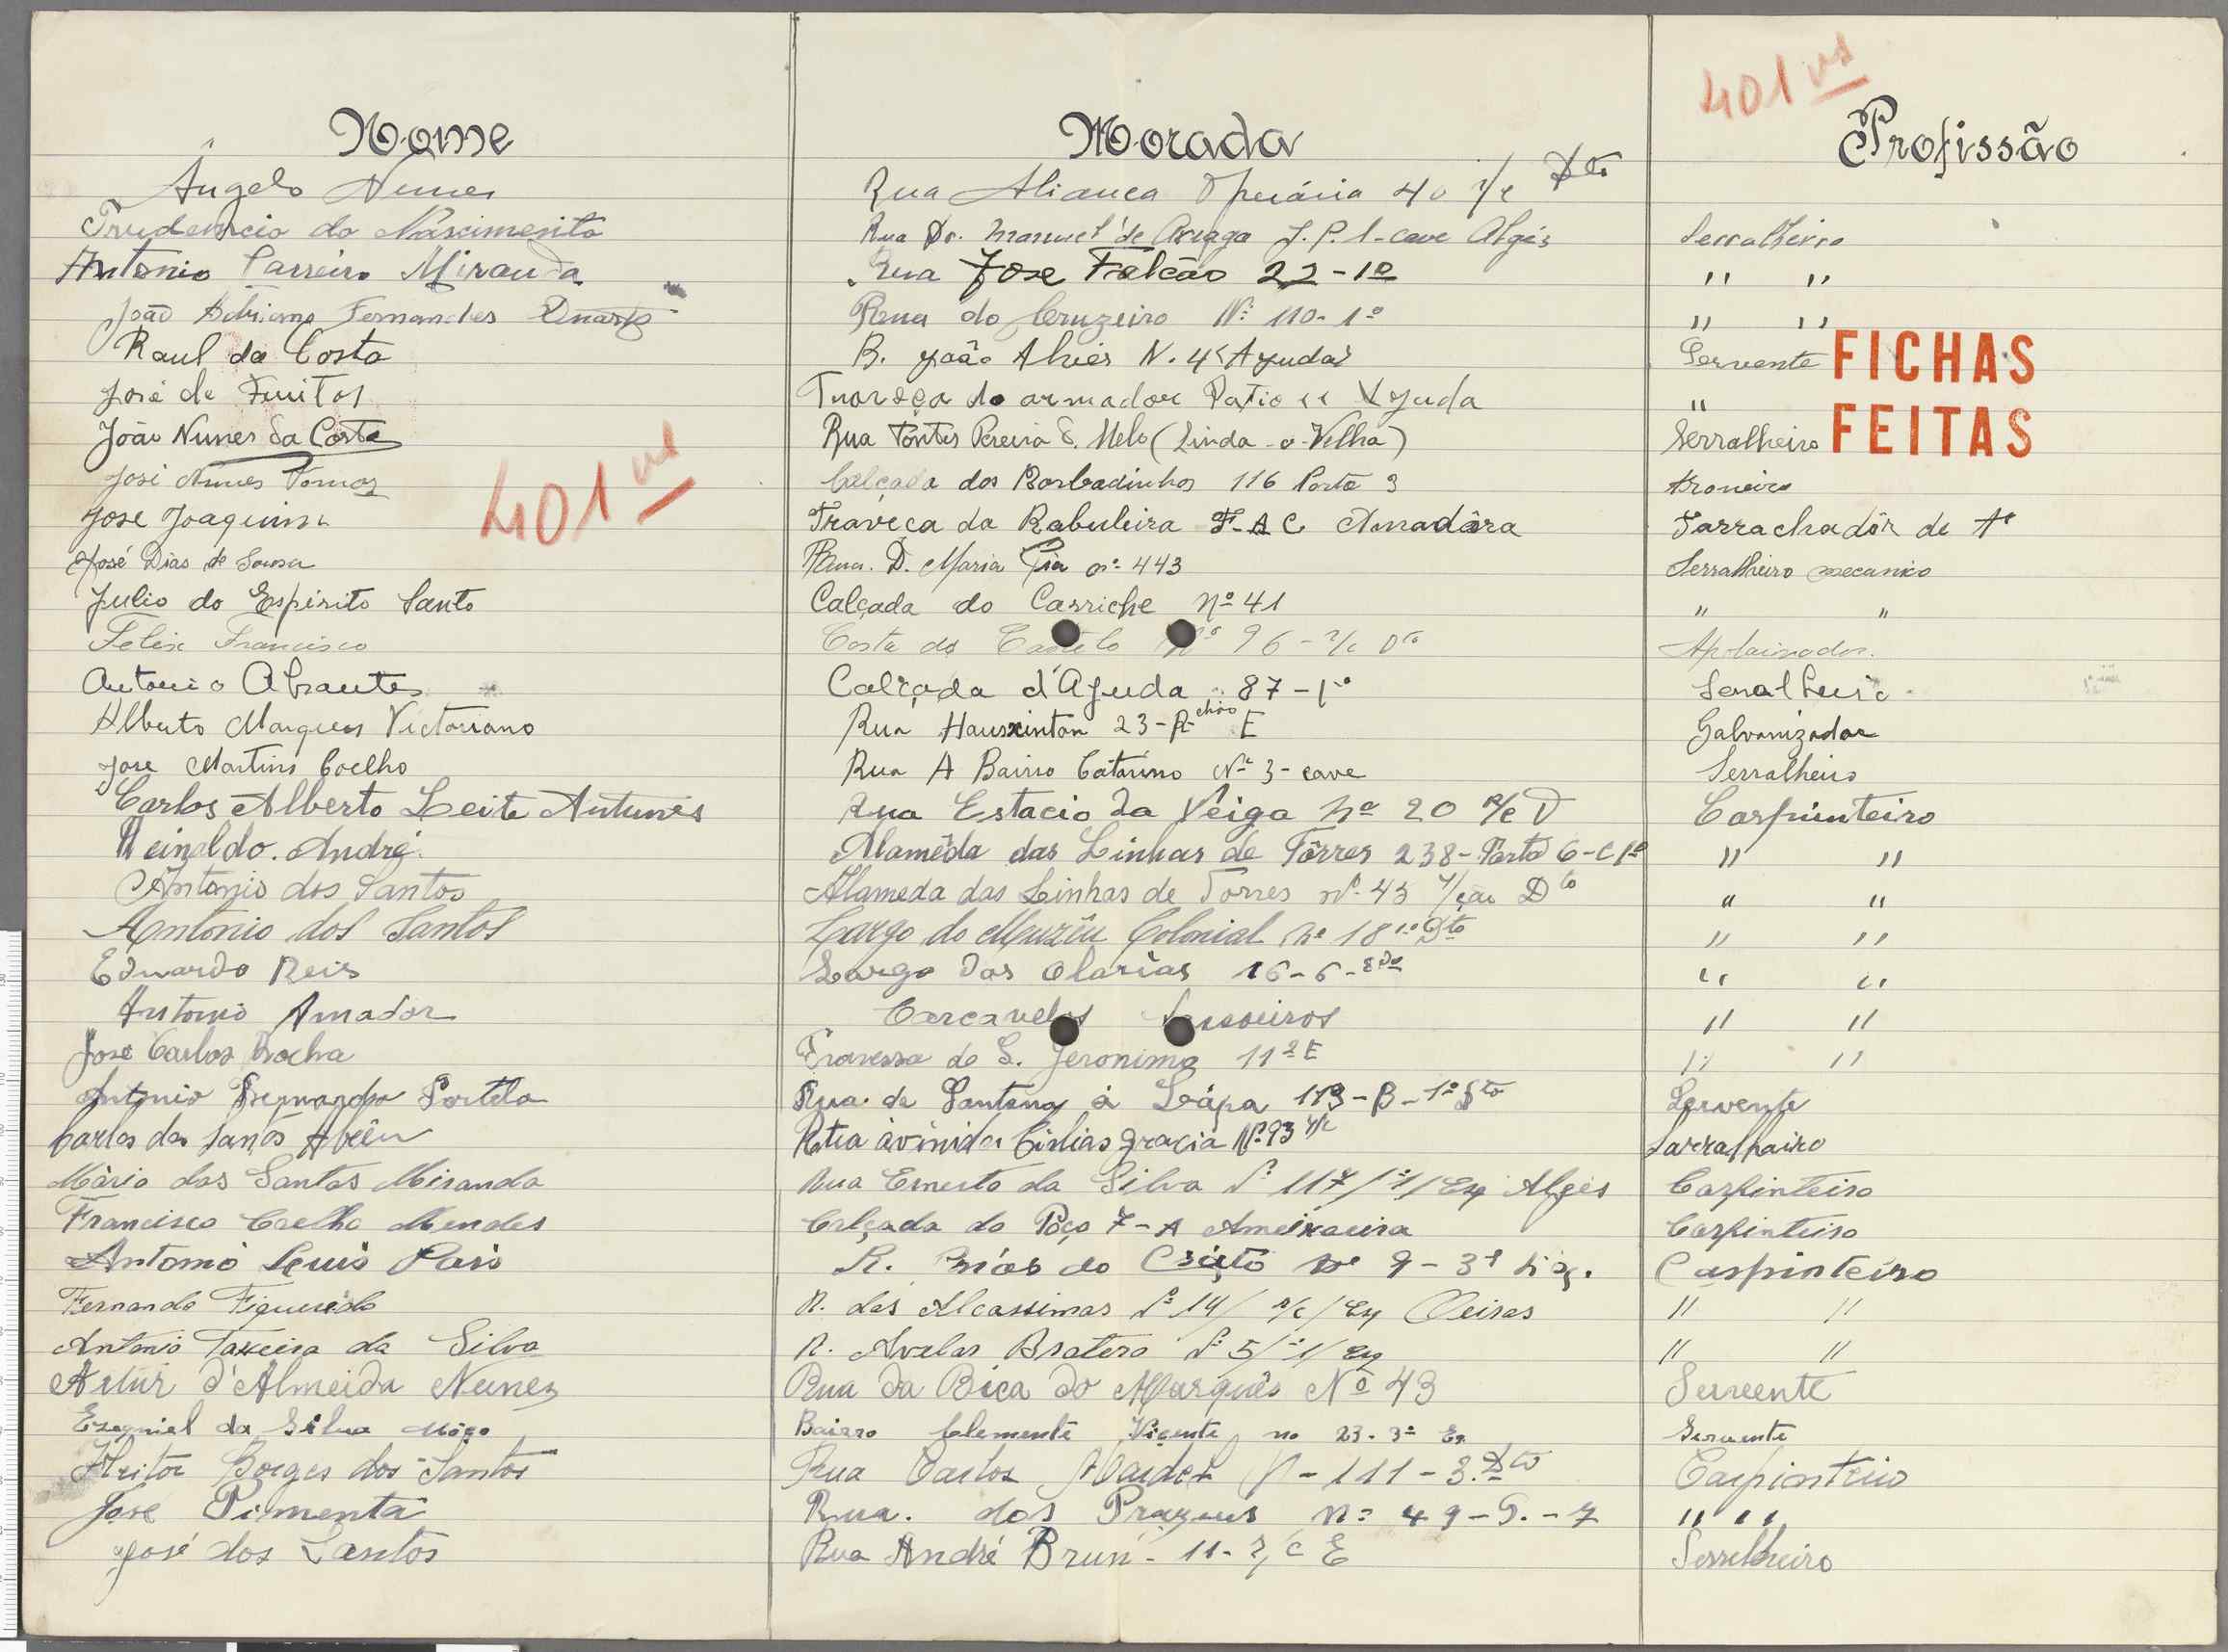 401 vs
Nome Morada Profissão
Ângelo Nunes Rua Aliança Operária 40 r/c Dto
Prudencio do Nascimento Rua Dr. Manuel de Arriaga J. P. 1-cave Algés Serralheiro
Antonio Parreira Miranda Rua Jose Falcão 22-1º " "
João Adriano Fernandes Duarte Rua do Cruzeiro Nº 110-1º " "
Raul da Costa R. João Alves N. 4 (Ajuda) Servente FICHAS
José de Freitas do armador Patio Ajuda "
João Nunes da Costa Rua Fontes Pereira d. Melo (Linda-a-Velha) Serralheiro FEITAS
José Nunes Tomaz Calçada dos Barbadinhos 116 Porta 3
401 vs
Jose Joaquim Traveça da Rabuleira F-A C Amadôra Tarrachadôr de 1ª
José Dias de Sousa Rua. D. Maria Pia nº 443 Serralheiro mecanico
Julio do Espirito Santo Calçada do Carriche nº 41 " "
Felix Francisco Costa do Castelo nº 96-r/c Dto Aplainador.
Antonio Abrantes Calçada d'Ajuda 87-1º Serralheiro
Alberto Marques Victoriano Rua 23-R-chão E Galvanizador
Jose Martins Coelho Rua A Bairro Catarino Nº 3-cave Serralheiro
Carlos Alberto Leite Antunes Rua Estacio da Veiga nº 20 r/c D Carpinteiro
Reinaldo. André. Alamêda das Linhas de Tôrres 238-Porta 6-C 1º " "
Antonio dos Santos Alameda das Linhas de Torres nº 45 Dto " "
Antonio dos Santos Largo do Muzêu Colonial nº 18 1º Dto " "
Eduardo Reis Largo das Olarias 16-6- " "
Antonio Amador Carcavelos Sassoeiros " "
José Carlos Rocha Travessa de S. Jeronimo 11 2º E " "
Antonio Bernardo Portela Rua de Santana á Lápa 113-B-1º Dto Servente
Carlos dos Santos Abrêu Rua àvinida Nº 93 r/c Sarralhairo
Mário dos Santos Miranda Rua Ernesto da Silva Nº 117/1º/Esq Algés Carpinteiro
Francisco Coelho Mendes Calçada do Poço 7-A Ameixoeira Carpinteiro
Antonio Luis Pais R. do nº 9-3º Carpinteiro
Fernando Figueiredo R. das Alcassimas Nº 14/ r/c/ Esq Oeiras " "
Antonio Taxeira da Silva R. Avelar Brotero Nº 5/1º/ Esq " "
Artur d'Almeida Nunes Rua da Bica do Marquês Nº 43 Servente
Ezequiel da Silva Môço Bairro Clemente Vicente no 23-3º Es. Servente
Heitor Borges dos Santos Rua Carlos Mardel Nº-111-3.º Dto Carpinteiro
Jose Pimenta Rua. dos Prazeres nº 49-9.-7 " "
José dos Santos Rua André Brun-11-r/c E Serrelheiro